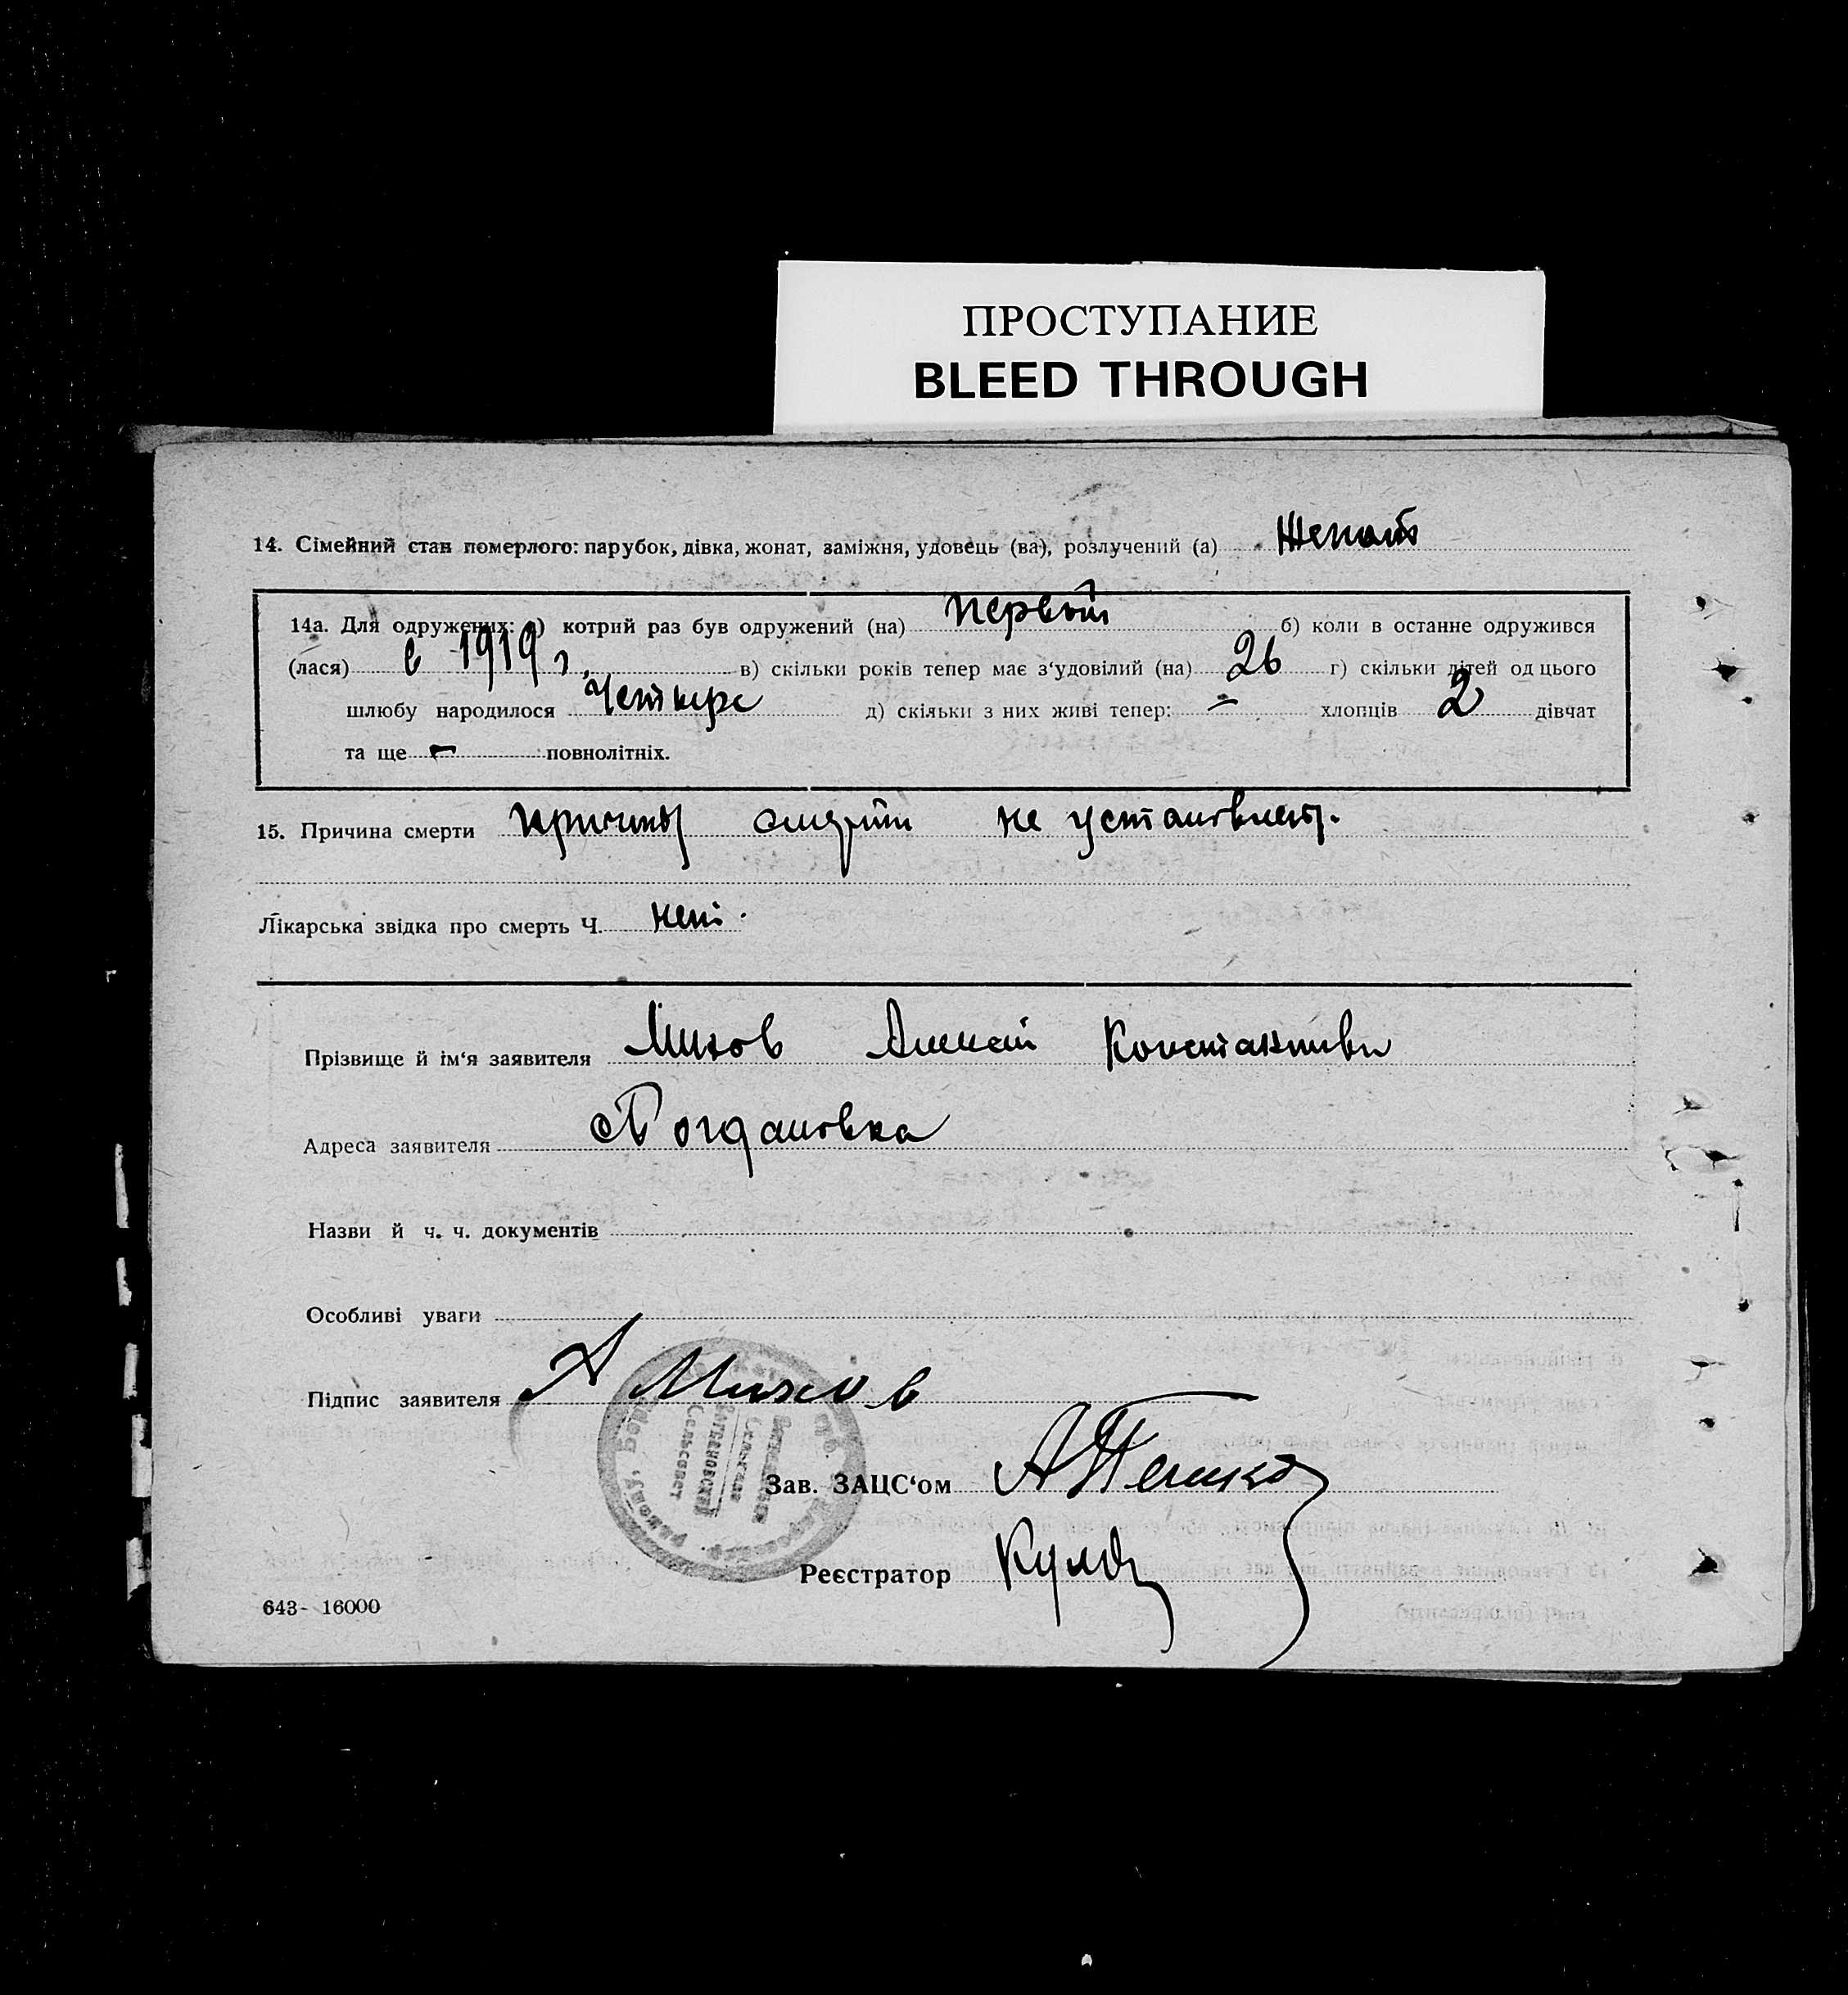 ПРОСТУПАНИЕ
BLEED THROUGH
14. Сімейний стан померлого: парубок, дівка, жонат, заміжня, удовець (ва), розлучений (а) Женат
14а. Для одружених: а) котрий раз був одружений (на) первый б) коли в останне одружився
(лася) в 1919 г. в) скільки років тепер має з'удовілий (на) 26 г) скільки дітей од цього
шлюбу народилося Четверо д) скільки з них живі тепер: – хлопців 2 дівчат
та ще – повнолітніх.
15. Причина смерти причины смерти не установлены.
Лікарська звідка про смерть Ч. нет.
Прізвище й ім'я заявителя Константинов
Адреса заявителя с Богдановка
Назви й ч. ч. документів
Особливі уваги
Підпис заявителя А
Зав. ЗАЦС'ом
Реєстратор
643- 16000